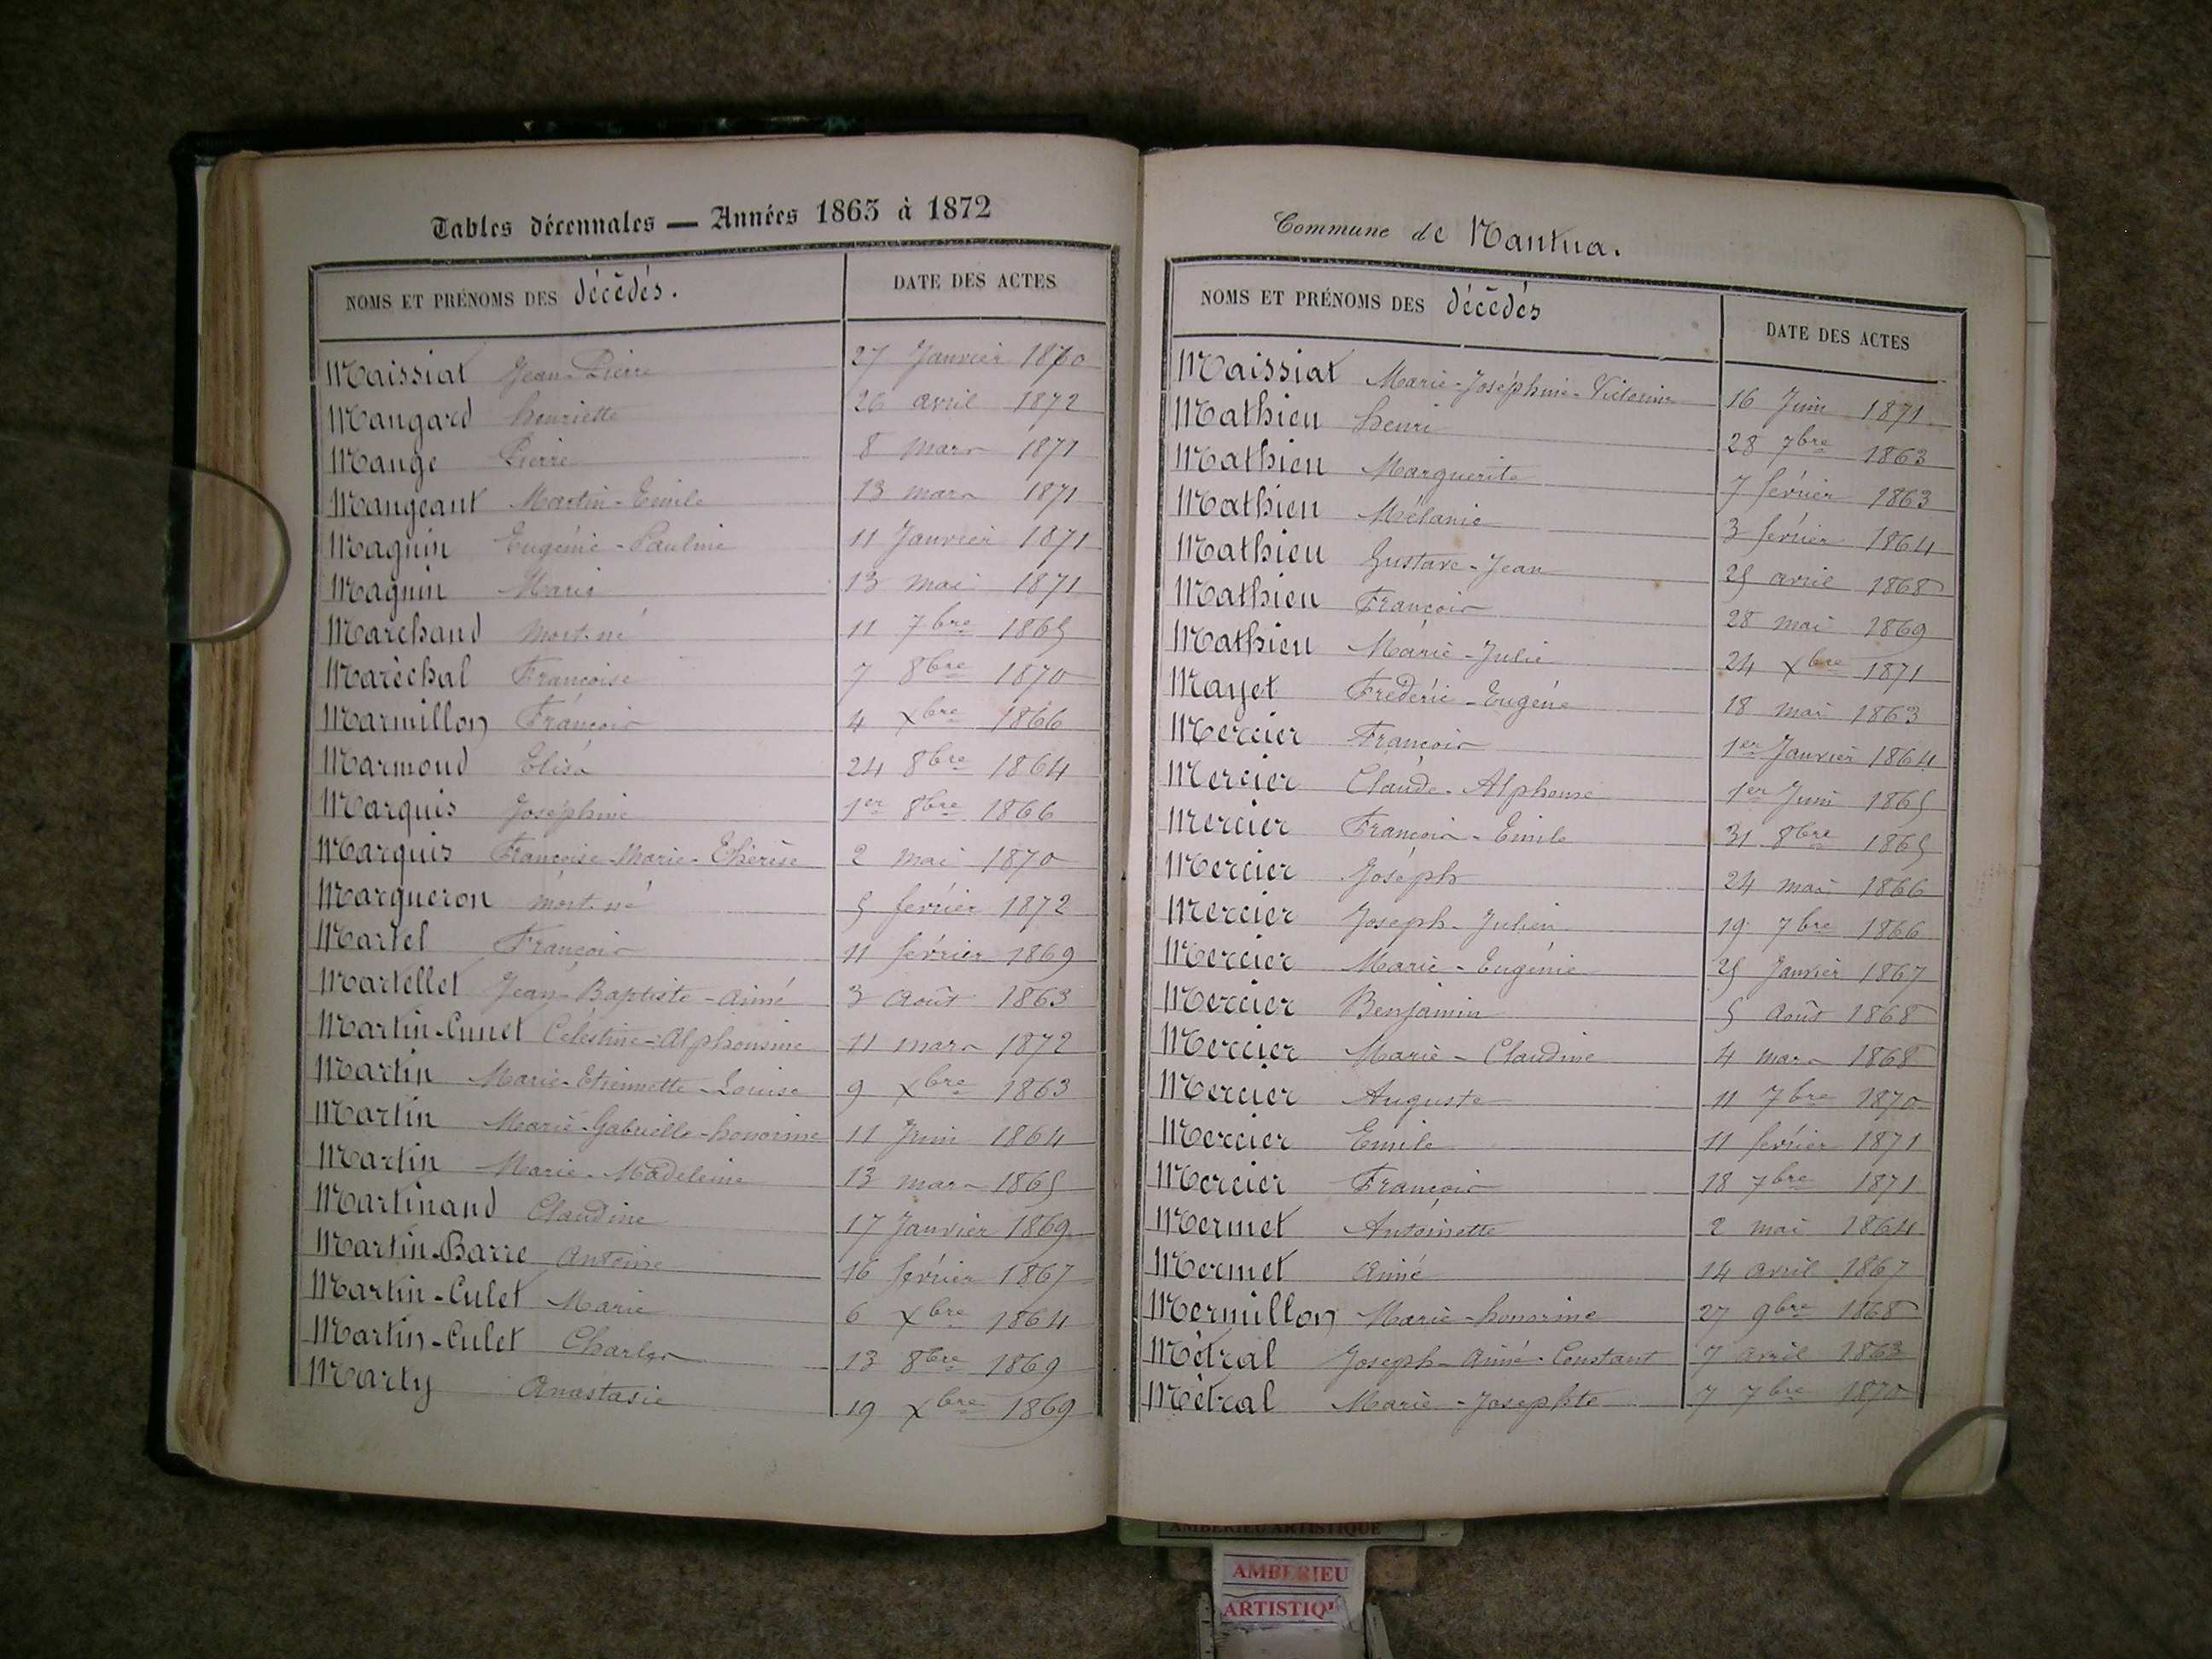 Tables décennales — Années 1863 à 1872
NOMS ET PRÉNOMS DES décédés. DATE DES ACTES
Maissiat Jean-Pierre 27 Janvier 1870
Mangard henriette 26 avril 1872
Mange Pierre 8 mars 1871
Mangeant Martin-Emile 13 mars 1871
Magnin Eugénie-Pauline 11 Janvier 1871
Magnin Marie 13 mai 1871
Marchand mort-né 11 7bre 1865
Maréchal Françoise 7 8bre 1870
Marmillon François 4 Xbre 1866
Marmoud Elisa 24 8bre 1864
Marquis Joséphine 1er 8bre 1866
Marquis Françoise-Marie-Thérèse 2 mai 1870
Margueron mort-né 5 février 1872
Martel François 11 février 1869
Martellet Jean-Baptiste-aimé 3 Août 1863
Martin-Cunet Célestine-Alphonsine 11 mars 1872
Martin Marie-Etiennette-Louise 9 Xbre 1863
Martin Marie-Gabrielle-honorine 11 Juin 1864
Martin Marie-Madeleine 13 mars 1865
Martinand Claudine 17 Janvier 1869
Martin-Barre Antoine 16 février 1867
Martin-Culet Marie 6 Xbre 1864
Martin-Culet Charles 13 8bre 1869
Marty Anastasie 19 Xbre 1869
Commune de Nantua.
NOMS ET PRÉNOMS DES décédés DATE DES ACTES
Maissiat Marie-Joséphine-Victorine 16 Juin 1871
Mathieu henri 28 7bre 1863
Mathieu Marguerite 7 février 1863
Mathieu Mélanie 3 février 1864
Mathieu Gustave-Jean 25 avril 1868
Mathieu François 28 mai 1869
Mathieu Marie-Julie 24 Xbre 1871
Mayet Frédéric-Eugène 18 mai 1863
Mercier François 1er Janvier 1864
Mercier Claude-Alphonse 1er Juin 1865
Mercier François-Emile 31 8bre 1865
Mercier Joseph 24 mai 1866
Mercier Joseph-Julien 19 7bre 1866
Mercier Marie-Eugénie 25 Janvier 1867
Mercier Benjamin 5 Août 1868
Mercier Marie-Claudine 4 mars 1868
Mercier Auguste 11 7bre 1870
Mercier Emile 11 février 1871
Mercier François 18 7bre 1871
Mermet Antoinette 2 mai 1864
Mermet aimé 14 avril 1867
Mermillon Marie-honorine 27 9bre 1868
Métral Joseph-aimé-Constant 7 avril 1863
Métral Marie-Josephte 7 7bre 1870
AMBERIEU ARTISTIQUE
AMBERIEU
ARTISTIQU